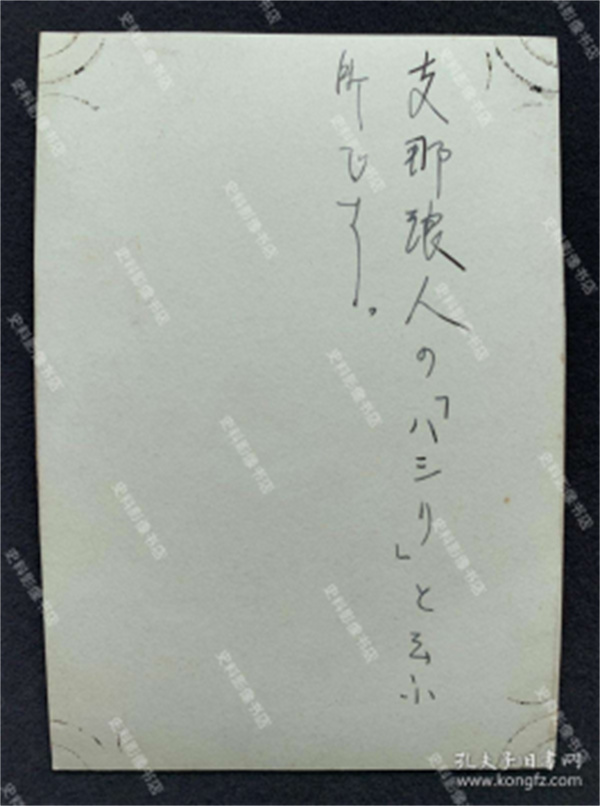 支那浪人の「ハシリ」と云ふ
所です。
史料影像书店
孔夫子旧书网
www.kongfz.com